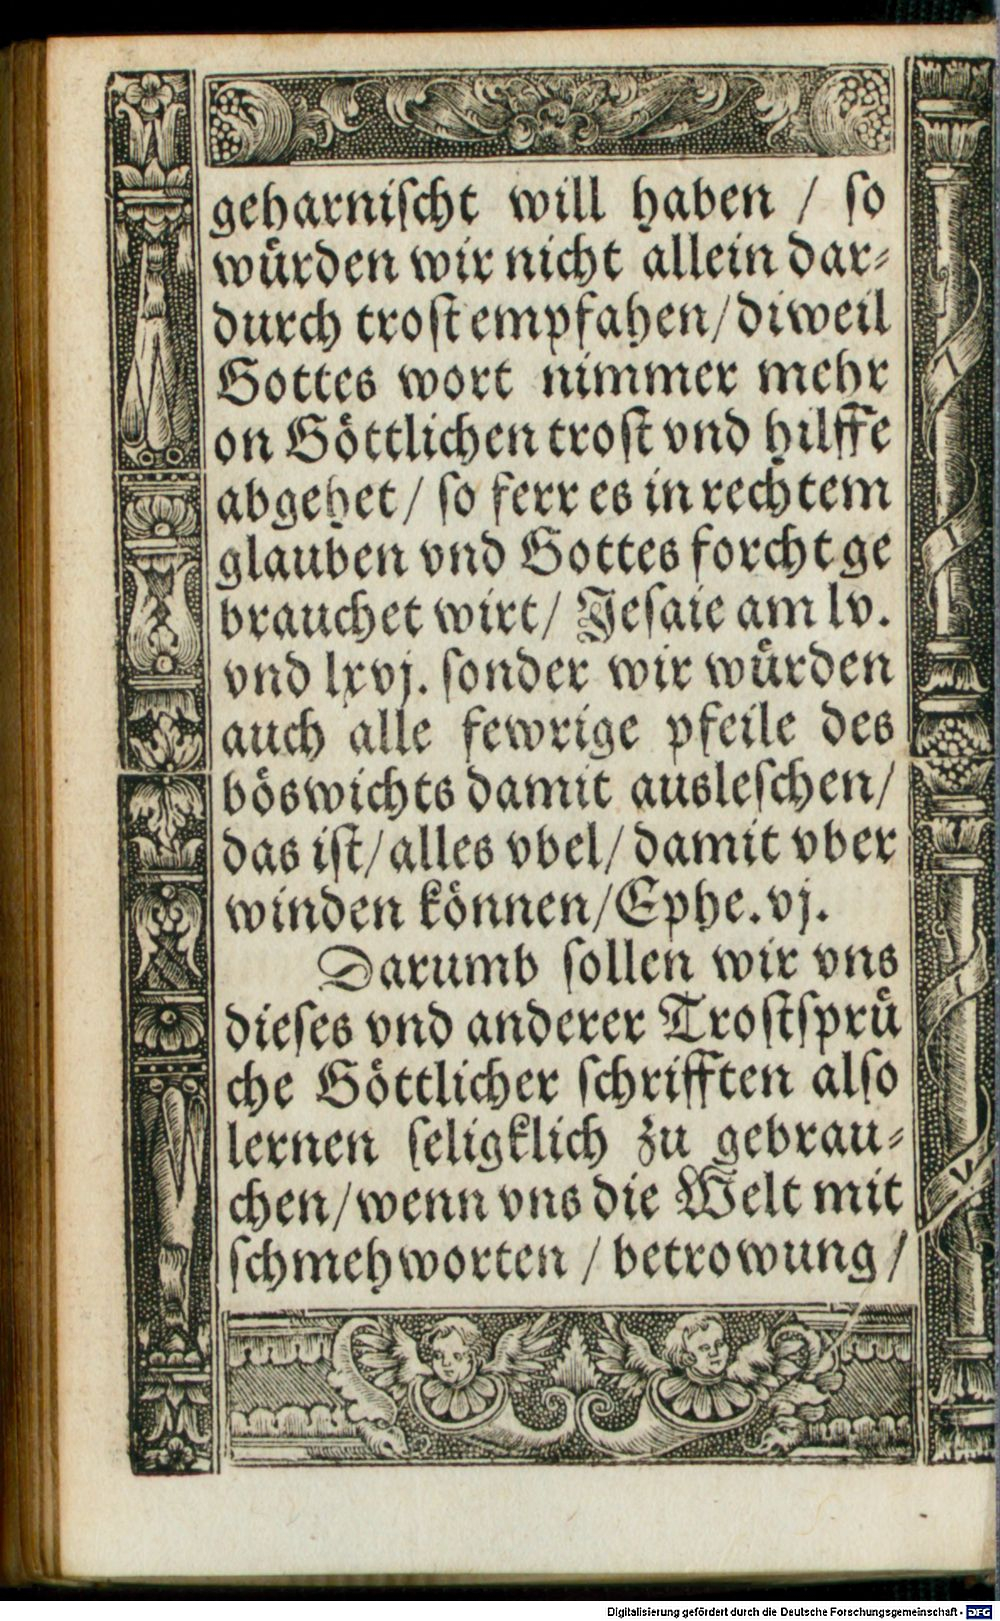 geharnischt will haben / so
wuͤrden wir nicht allein dar⸗
durch trost empfahen/diweil
Gottes wort nimmer mehr
on Göttlichen trost vnd hilffe
abgehet/ so ferr es in rechtem
glauben vnd Gottes forcht ge
brauchet wirt/ Jesaie am lv.
vnd lxvj. sonder wir wuͤrden
auch alle fewrige pfeile des
böswichts damit ausleschen/
das ist/alles vbel/damit vber
winden können/Ephe.vj.
Darumb sollen wir vns
dieses vnd anderer Trostspruͤ
che Göttlicher schrifften also
lernen seligklich zu gebrau⸗
chen/wenn vns die Welt mit
schmehworten / betrowung/
Digitalisierung gefördert durch die Deutsche Forschungsgemeinschaft - DFG